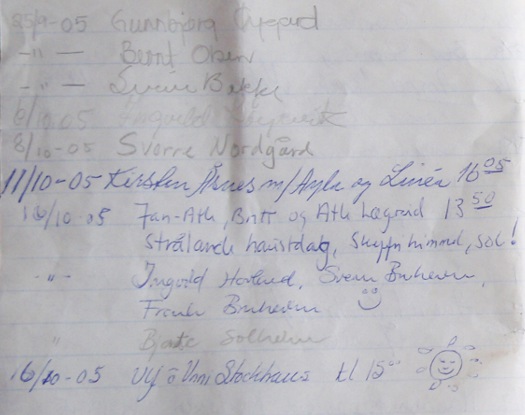 25/9-05 Gunnbjørg
-"- Bernt Olsen
-"- Svein Bakke
6/10.05 Ingvild
8/10-05 Sverre Nordgård
11/10-05 Kirsten Årnes m/Ayla og Linéa 16 05
16/10-05 Jan-Atle, Britt og Atle Lægreid 13 50
Strålande haustdag, Skyfri himmel, sol!
-"- Ingvild Hovlund, Svein Bruheim,
Frank Bruheim
" Bjarte Solheim
16/10-05 Unni Stockhaus kl 15